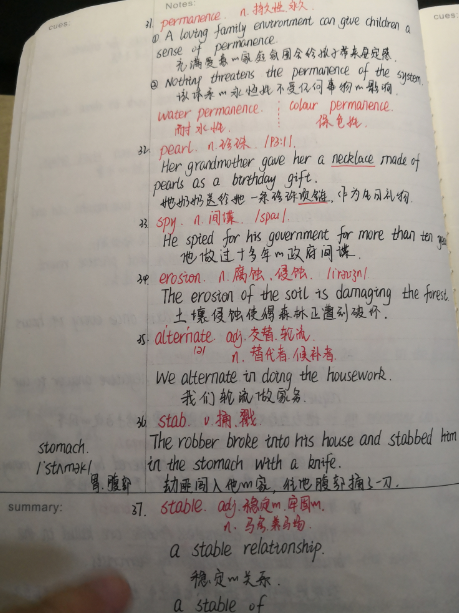 cues:
Notes:
cues:
31. permanence. n. 持久性 永久
① A loving family environment can give children a
sense of permanence.
充满爱的家庭氛围会给孩子带来安定感.
② Nothing threatens the permanence of the system.
该体系的永恒性不受任何事物的影响.
water permanence. colour permanence.
耐水性. 保色性.
32. pearl. n. 珍珠. /pɜ:l/
Her grandmother gave her a necklace made of
pearls as a birthday gift.
她奶奶送给她一条珍珠项链,作为生日礼物.
33. spy. n. 间谍. /spaɪ/
He spied for his government for more than ten
他做过十多年的政府间谍.
34. erosion. n. 腐蚀.侵蚀. /ɪˈrəʊʒn/
The erosion of the soil is damaging the forest.
土壤侵蚀使得森林正遭到破坏.
35. alternate adj. 交替.轮流.
/ə/ n. 替代者.候补者.
We alternate in doing the housework.
我们轮流做家务.
36. stab. v. 捅.戳
stomach. The robber broke into his house and stabbed him
/ˈstʌmək/ in the stomach with a knife.
胃.腹部 劫匪闯入他的家,往他腹部捅了一刀.
summary:
37. stable. adj. 稳定的.牢固的.
n. 马房.养马场.
a stable relationship.
稳定的关系.
a stable of